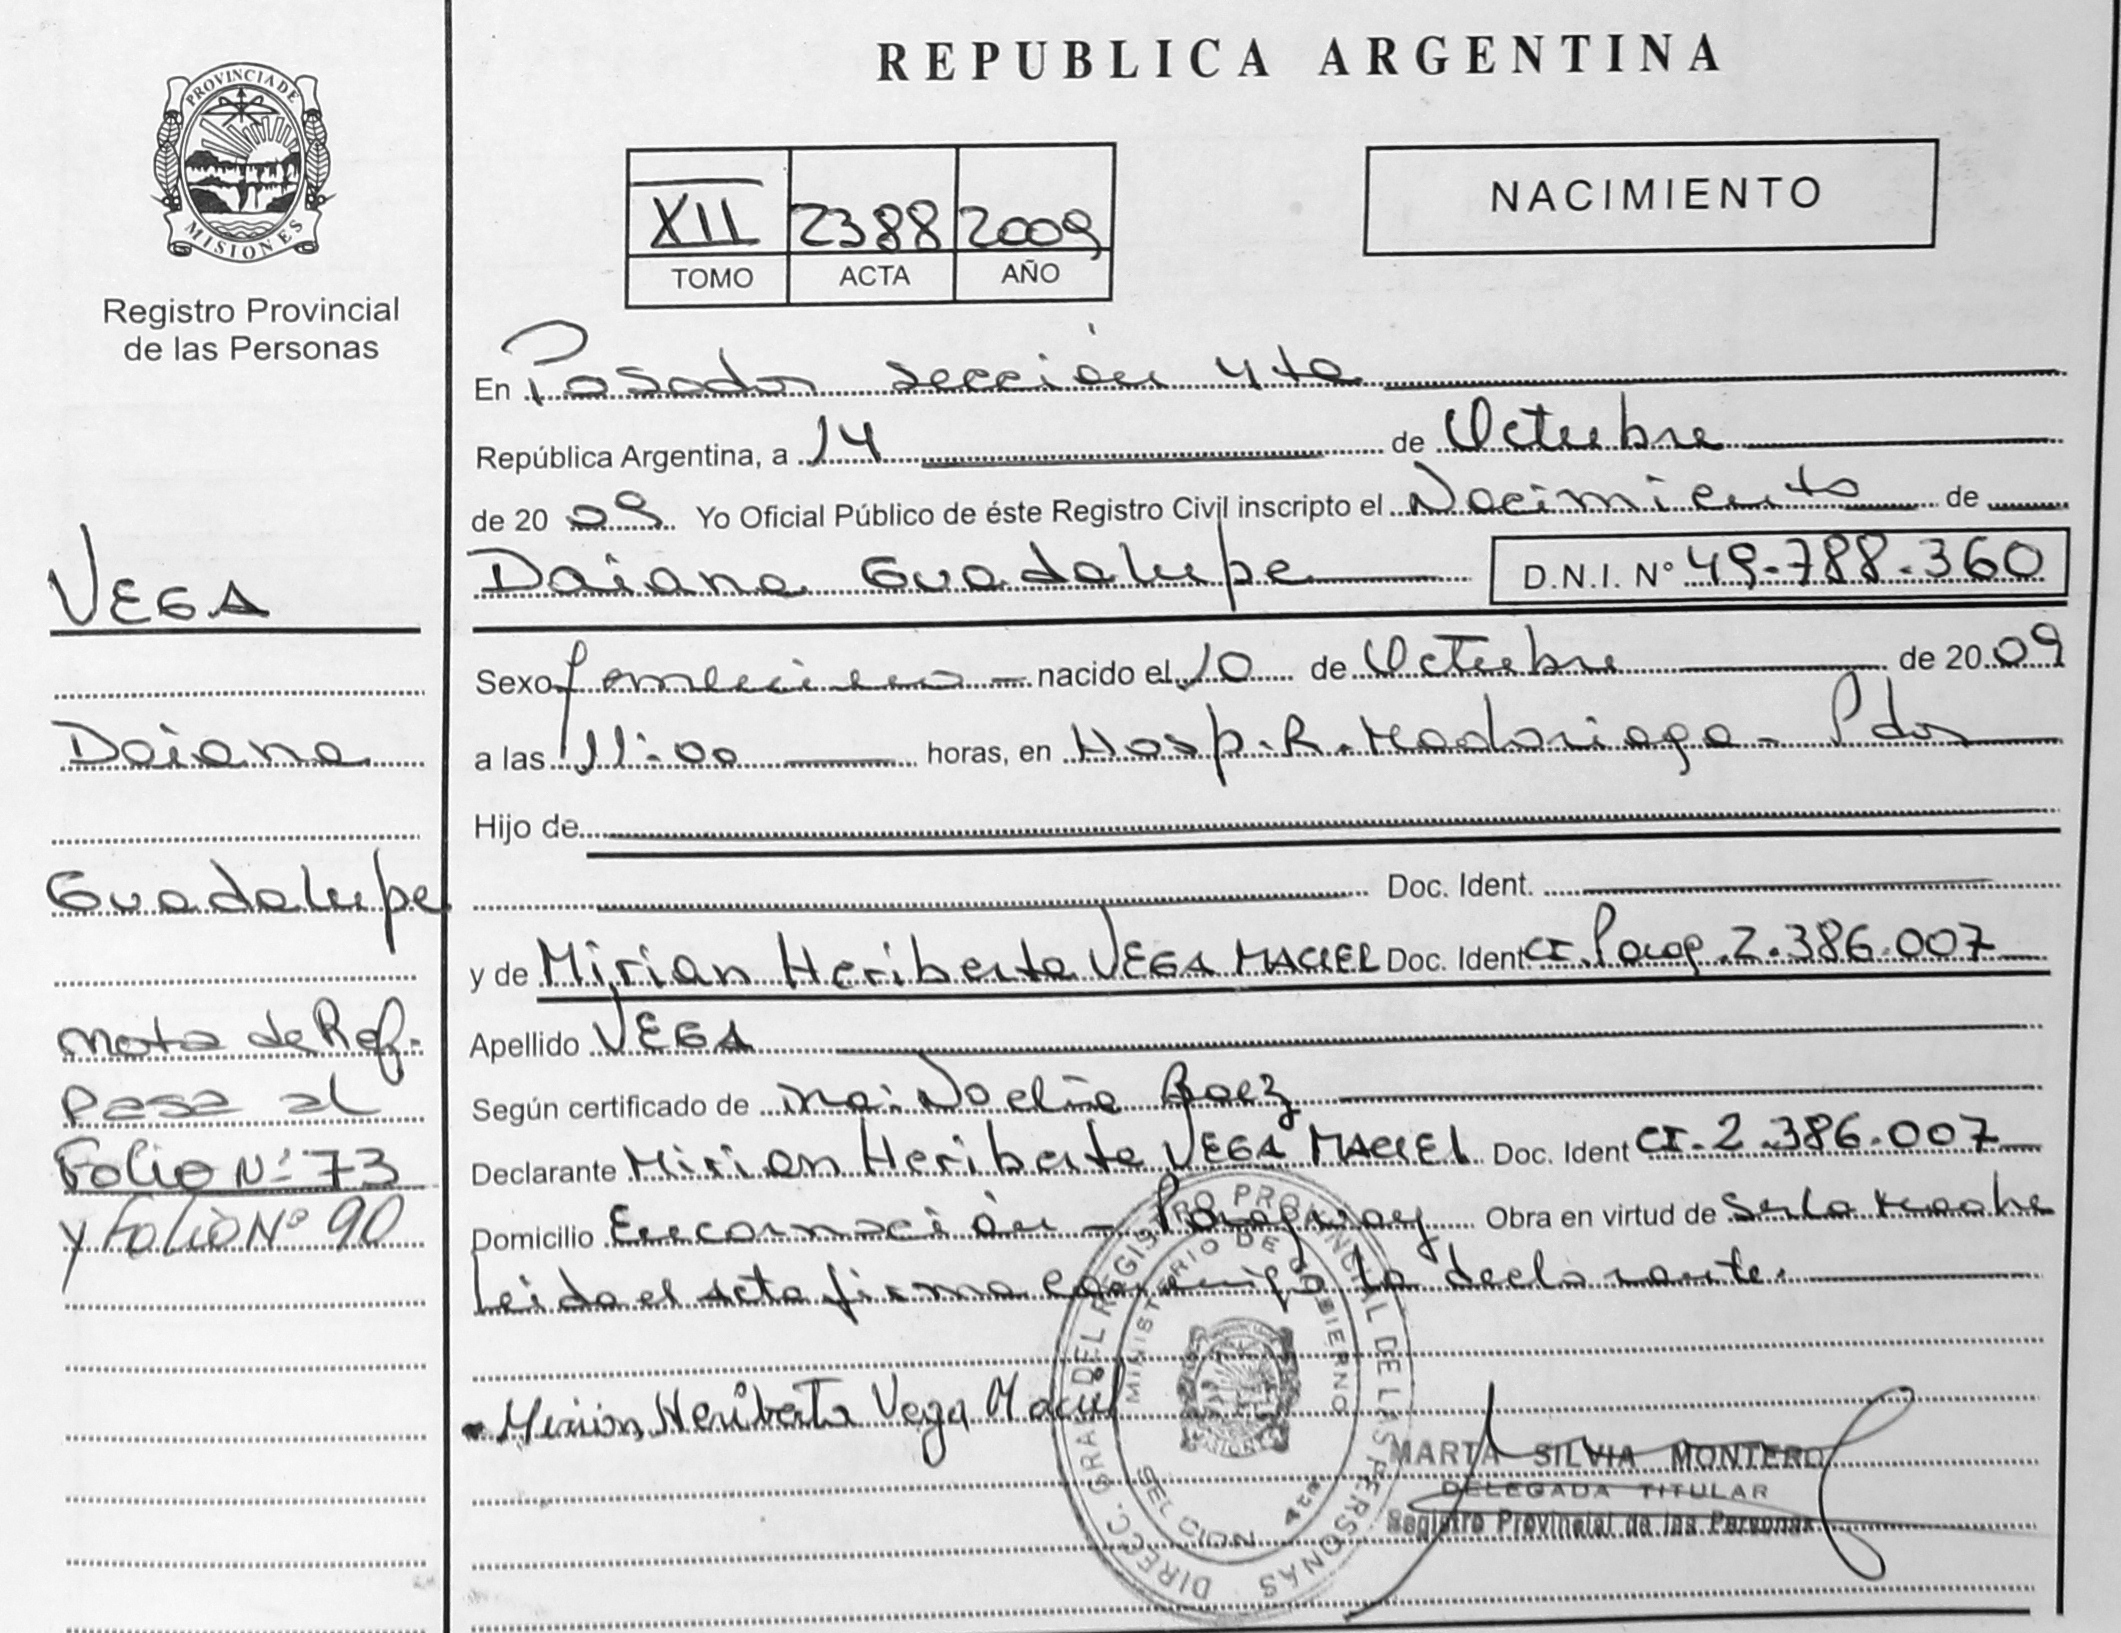 REPUBLICA ARGENTINA
PROVINCIA DE
MISIONES
Registro Provincial
de las Personas
XII 2388 2009
TOMO ACTA AÑO
NACIMIENTO
En Posadas sección 4ta
República Argentina, a 14 de Octubre
de 20 09 Yo Oficial Público de éste Registro Civil inscripto el Nacimiento de
Daiana Guadalupe D.N.I. N° 49.788.360
Sexo femenino nacido el 10 de Octubre de 20 09
a las 11:00 horas, en Hosp. R. Madariaga - Pdas
Hijo de
Doc. Ident.
y de Mirian Heriberta VEGA MACIEL Doc. Ident CI. Parag. 2.386.007
Apellido VEGA
Según certificado de Noelia Baez
Declarante Mirian Heriberta VEGA MACIEL Doc. Ident CI. 2.386.007
Domicilio Encarnación - Paraguay Obra en virtud de Ser la Madre
Leida el Acta firma conmigo la declarante.
Mirian Heriberta Vega Maciel
MARTA SILVIA MONTERO
DELEGADA TITULAR
Registro Provincial de las Personas
DIRECC. GRAL DEL REGISTRO PROVINCIAL DE LAS PERSONAS
MINISTERIO DE GOBIERNO
SECCION 4ta
MISIONES
VEGA
Daiana
Guadalupe
Nota de Ref.
Pasa al
Folio N° 73
y Folio N° 90